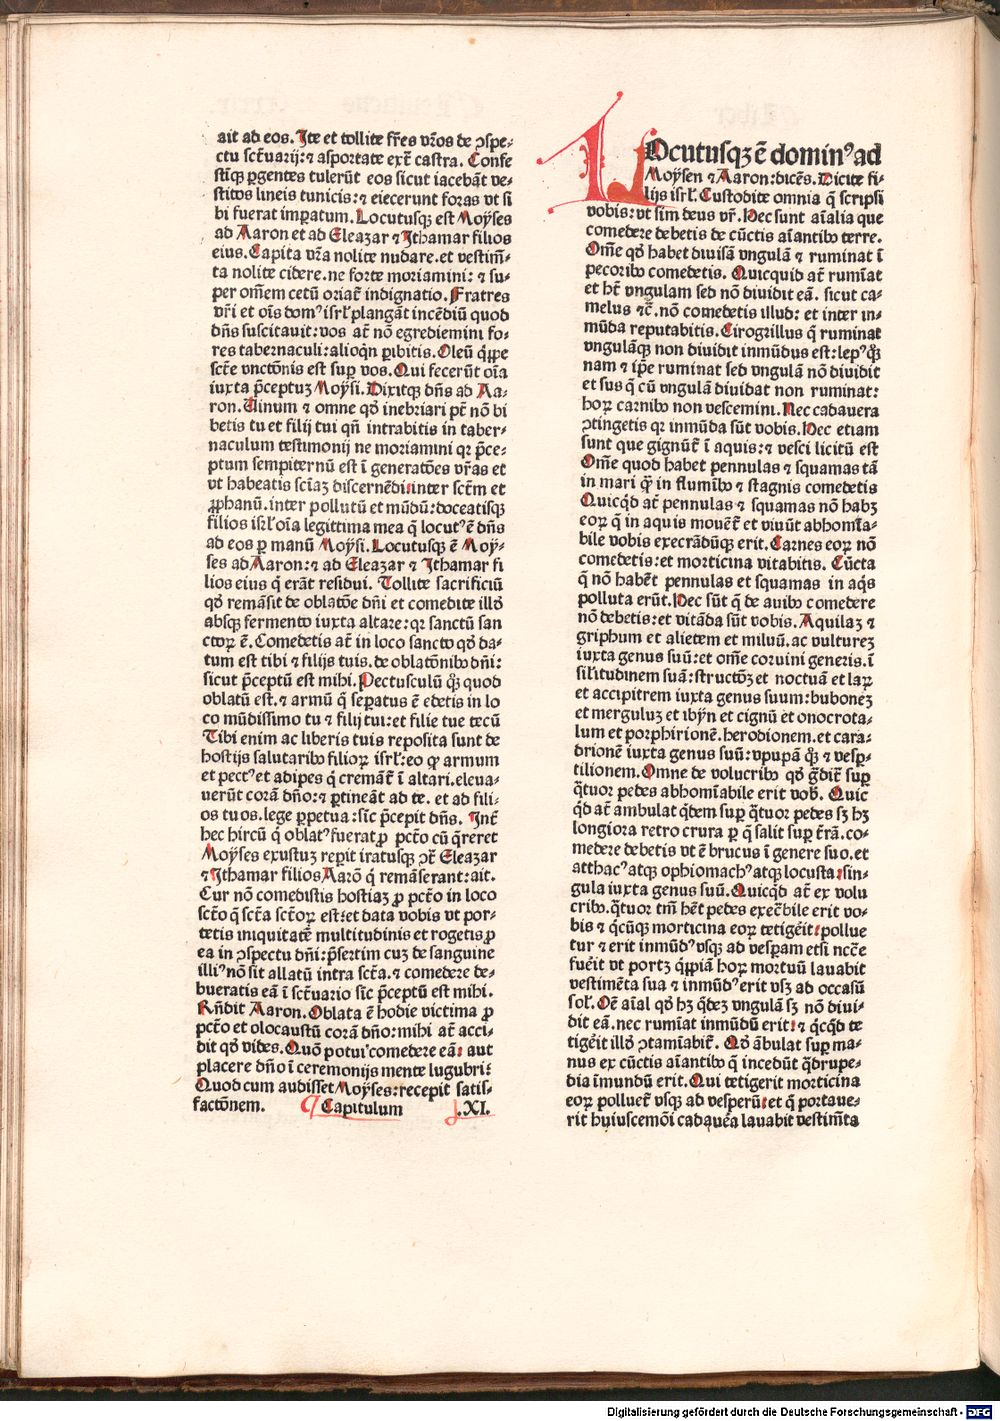 ait ad eos. Ite et tollite fr̄es vr̄os de ↄspe-
ctu sct̄uarij: ⁊ asportate ext̄ castra. Confe
stīqꝫ ꝑgentes tulerūt eos sicut iacebāt ve-
stitos lineis tunicis: ⁊ eiecerunt foras vt si
bi fuerat imꝑatum. Locutusqꝫ est Moyses
ad Aaron et ad Eleazar ⁊ Ithamar filios
eius. Capita vr̄a nolite nudare. et vestim̄-
ta nolite cidere. ne forte moriamini: ⁊ su-
per om̄em cetū oriat̄ indignatio. Fratres
vr̄i et oīs domꝰ isrl̄ plangāt incēdiū quod
dn̄s suscitauit: vos at̄ nō egrediemini fo-
res tabernaculi: alioqn̄ ꝑibitis. Oleū q̄ꝑpe
sct̄e vnctōnis est suꝑ vos. Qui fecerūt oīa
iuxta p̄ceptuꝫ Moysi. Dixitqꝫ dn̄s ad Aa-
ron. Uinum ⁊ omne qd̄ inebriari pt̄ nō bi
betis tu et filij tui qn̄ intrabitis in taber-
naculum testimonij ne moriamini qꝛ p̄ce-
ptum sempiternū est ī generatōes vr̄as et
vt habeatis scīaꝫ discernēdi inter sct̄m et
ꝓphanū. inter pollutū et mūdū: doceatisqꝫ
filios isrl̄ oīa legittima mea q̄ locutꝰ ē dn̄s
ad eos ꝑ manū Moysi. Locutusqꝫ ē Moy-
ses ad Aaron: ⁊ ad Eleazar ⁊ Ithamar fi
lios eius q̄ erāt residui. Tollite sacrificiū
qd̄ remāsit de oblatōe dn̄i et comedite illd̄
absqꝫ fermento iuxta altare: qꝛ sanctū san
ctoꝝ ē. Comedetis at̄ in loco sancto qd̄ da-
tum est tibi ⁊ filijs tuis. de oblatōnibꝰ dn̄i:
sicut p̄ceptū est mihi. Pectusculū qꝫ quod
oblatū est. ⁊ armū q̄ seꝑatus ē edetis in lo
co mūdissimo tu ⁊ filij tui: et filie tue tecū
Tibi enim ac liberis tuis reposita sunt de
hostijs salutaribꝰ filioꝝ isrl̄: eo ꝙ armum
et pectꝰ et adipes q̄ cremāt̄ ī altari. eleua-
uerūt corā dn̄o: ⁊ ꝑtineāt ad te. et ad fili-
os tuos. lege ꝑpetua: sic̄ p̄cepit dn̄s. Int̄
hec hircū q̄ oblatꝰ fuerat ꝓ pctō cū q̄reret
Moyses exustuꝫ reꝑit iratusqꝫ ↄt̄ Eleazar
⁊ Ithamar filios Aarō q̄ remāserant: ait.
Cur nō comedistis hostiaꝫ ꝓ pctō in loco
sctō q̄ sct̄a sctōꝝ est: et data vobis vt por-
tetis iniquitatē multitudinis et rogetis ꝓ
ea in ↄspectu dn̄i: p̄sertim cuꝫ de sanguine
illiꝰ nō sit allatū intra sct̄a. ⁊ comedere de-
bueratis eā ī sct̄uario sic̄ p̄ceptū est mihi.
Rn̄dit Aaron. Oblata ē hodie victima ꝓ
pctō et olocaustū corā dn̄o: mihi at̄ acci-
dit qd̄ vides. Quō potui comedere eā: aut
placere dn̄o ī ceremonijs mente lugubri:
Quod cum audisset Moyses: recepit satis-
factōnem. Capitulum .XI.
LOcutusqꝫ ē dominꝰ ad
Moysen ⁊ Aaron: dicēs. Dicite fi-
lijs isrl̄. Custodite omnia q̄ scripsi
vobis: vt sim deus vr̄. Hec sunt aīalia que
comedere debetis de cūctis aīantibꝰ terre.
Om̄e qd̄ habet diuisā vngulā ⁊ ruminat ī
pecoribꝰ comedetis. Quicquid at̄ rumīat
et hꝫ vngulam sed nō diuidit eā. sicut ca-
melus ⁊c̄. nō comedetis illud: et inter in-
mūda reputabitis. Cirogrillus q̄ ruminat
vngulāqꝫ non diuidit inmūdus est: lepꝰ qꝫ
nam ⁊ ip̄e ruminat sed vngulā nō diuidit
et sus q̄ cū vngulā diuidat non ruminat:
hoꝝ carnibꝰ non vescemini. Nec cadauera
ↄtingetis qꝛ inmūda sūt vobis. Hec etiam
sunt que gignūt̄ ī aquis: ⁊ vesci licitū est
Om̄e quod habet pennulas ⁊ squamas tā
in mari qꝫ in flumībꝰ ⁊ stagnis comedetis
Quicqd̄ at̄ pennulas ⁊ squamas nō habꝫ
eoꝝ q̄ in aquis mouēt̄ et viuūt abhomīa-
bile vobis execrādūqꝫ erit. Carnes eoꝝ nō
comedetis: et morticina vitabitis. Cūcta
q̄ nō habēt pennulas et squamas in aq̄s
polluta erūt. Hec sūt q̄ de auibꝰ comedere
nō debetis: et vitāda sūt vobis. Aquilaꝫ ⁊
griphum et alietem et miluū. ac vultureꝫ
iuxta genus suū: et om̄e coruini generis. ī
sil̄itudinem suā: structōꝫ et noctuā et laꝝ
et accipitrem iuxta genus suum: buboneꝫ
et merguluꝫ et ibyn et cignū et onocrota-
lum et porphirionē. herodionem. et cara-
drionē iuxta genus suū: vpupā qꝫ ⁊ vesꝑ-
tilionem. Omne de volucribꝰ qd̄ gd̄it̄ suꝑ
q̄tuor pedes abhomīabile erit vob̄. Quic
qd̄ at̄ ambulat qd̄em suꝑ q̄tuor pedes sꝫ hꝫ
longiora retro crura ꝑ q̄ salit suꝑ t̄rā. co-
medere debetis vt ē brucus ī genere suo. et
atthacꝰ atqꝫ ophiomachꝰ atqꝫ locusta: sin-
gula iuxta genus suū. Quicqd̄ at̄ ex volu
cribꝰ. q̄tuor tm̄ hēt pedes execr̄bile erit vo-
bis ⁊ q̄cūqꝫ morticina eoꝝ tetigēit: pollue
tur ⁊ erit inmūdꝰ vsqꝫ ad vesꝑam etsi ncc̄e
fuēit vt portꝫ q̄ꝑpiā hoꝝ mortuū lauabit
vestimēta sua ⁊ inmūdꝰ erit vsꝫ ad occasū
sol̄. Oē aīal qd̄ hꝫ qd̄eꝫ vngulā sꝫ nō diui-
dit eā. nec rumīat inmūdū erit: ⁊ qc̄qd̄ te
tigēit illd̄ ↄtamīabit̄. Qd̄ ābulat suꝑ ma-
nus ex cūctis aīantibꝰ q̄ incedūt q̄drupe-
dia īmundū erit. Qui tetigerit morticina
eoꝝ polluet̄ vsqꝫ ad vesperū: et q̄ portaue-
rit huiuscemōi cadauēa lauabit vestim̄ta
Digitalisierung gefördert durch die Deutsche Forschungsgemeinschaft - DFG